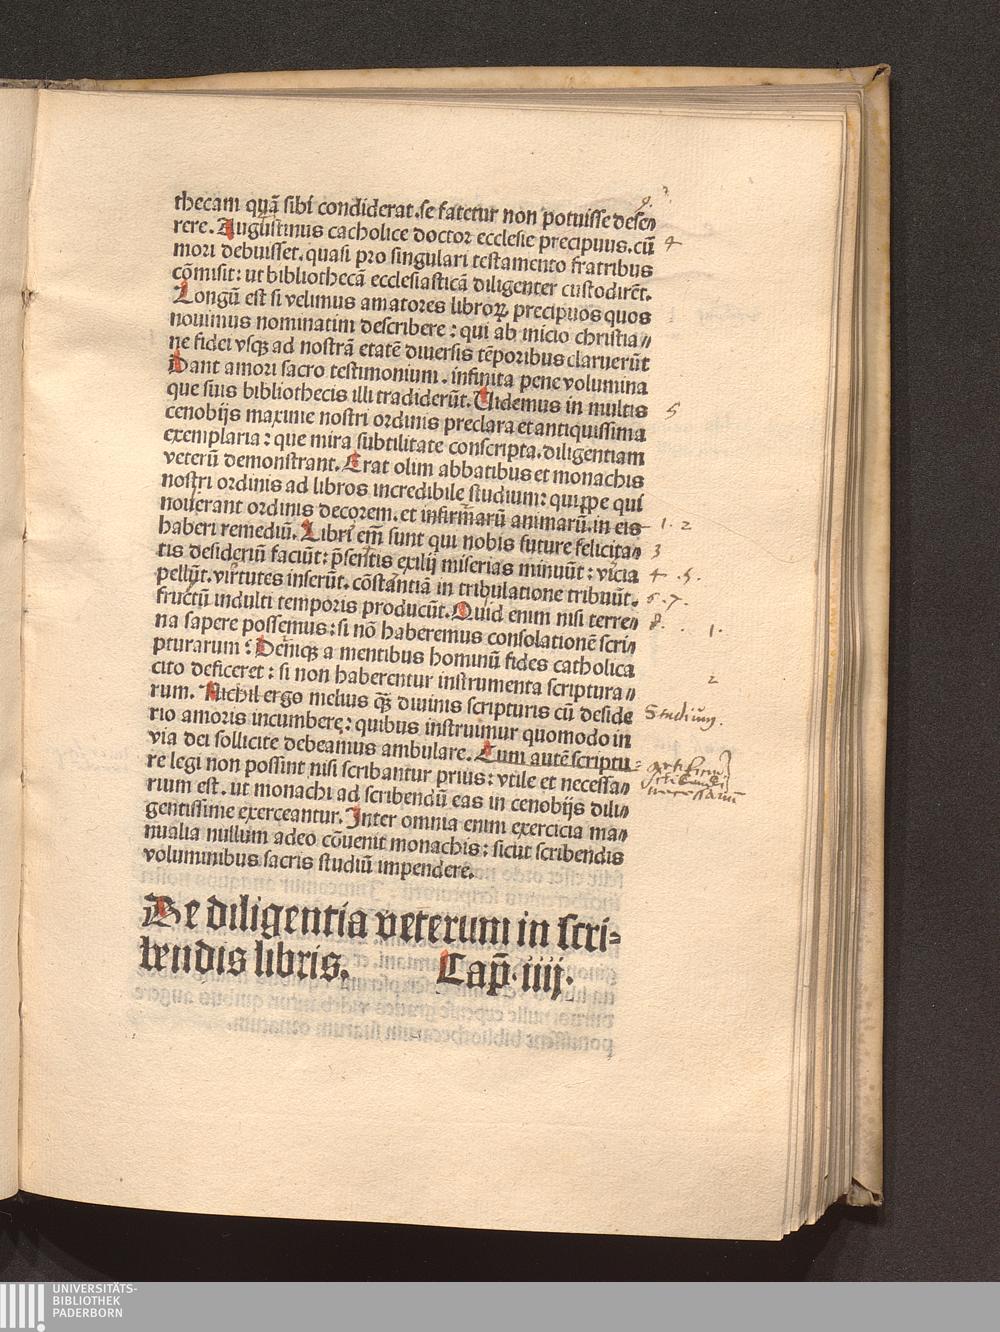 thecam quā sibi condiderat. se fatetur non potuisse dese⸗
rere. Augustinus catholice doctor ecclesie precipuus. cū
mori debuisset. quasi pro singulari testamento fratribus
cōmisit: ut bibliothecā ecclesiasticā diligenter custodirēt.
Longū est si velimus amatores libroꝝ precipuos quos
nouimus nominatim describere: qui ab inicio christia⸗
ne fidei vsqꝫ ad nostrā etatē diuersis tēporibus claruerūt
Dant amori sacro testimonium. infinita pene volumina
que suis bibliothecis illi tradiderūt. Uidemus in multis
cenobijs maxime nostri ordinis preclara et antiquissima
exemplaria: que mira subtilitate conscripta. diligentiam
veterū demonstrant. Erat olim abbatibus et monachis
nostri ordinis ad libros incredibile studium: quippe qui
nouerant ordinis decorem. et infirmarū animarū. in eis
haberi remediū. Libri em̄ sunt qui nobis future felicita⸗
tis desideriū faciūt: p̄sentis exilij miserias minuūt: vicia
pellūt. virtutes inserūt. cōstantiā in tribulatione tribuūt.
fructū indulti temporis producūt. Quid enim nisi terre⸗
na sapere possemus: si nō haberemus consolationē scri⸗
pturarum? Deniqꝫ a mentibus hominū fides catholica
cito deficeret: si non haberentur instrumenta scriptura⸗
rum. Nichil ergo melius qꝫ̄ diuinis scripturis cū deside
rio amoris incumbere: quibus instruimur quomodo in
via dei sollicite debeamus ambulare. Cum autē scriptu⸗
re legi non possint nisi scribantur prius: vtile et necessa⸗
rium est. ut monachi ad scribendū eas in cenobijs dili⸗
gentissime exerceantur. Inter omnia enim exercicia ma⸗
nualia nullum adeo cōuenit monachis: sicut scribendis
voluminibus sacris studiū impendere.
De diligentia veterum in scri⸗
bendis libris. Cap̄. iiij.
4
5
1. 2
3
4. 5.
6. 7.
8. 1.
2
Studium.
UNIVERSITÄTS-
BIBLIOTHEK
PADERBORN